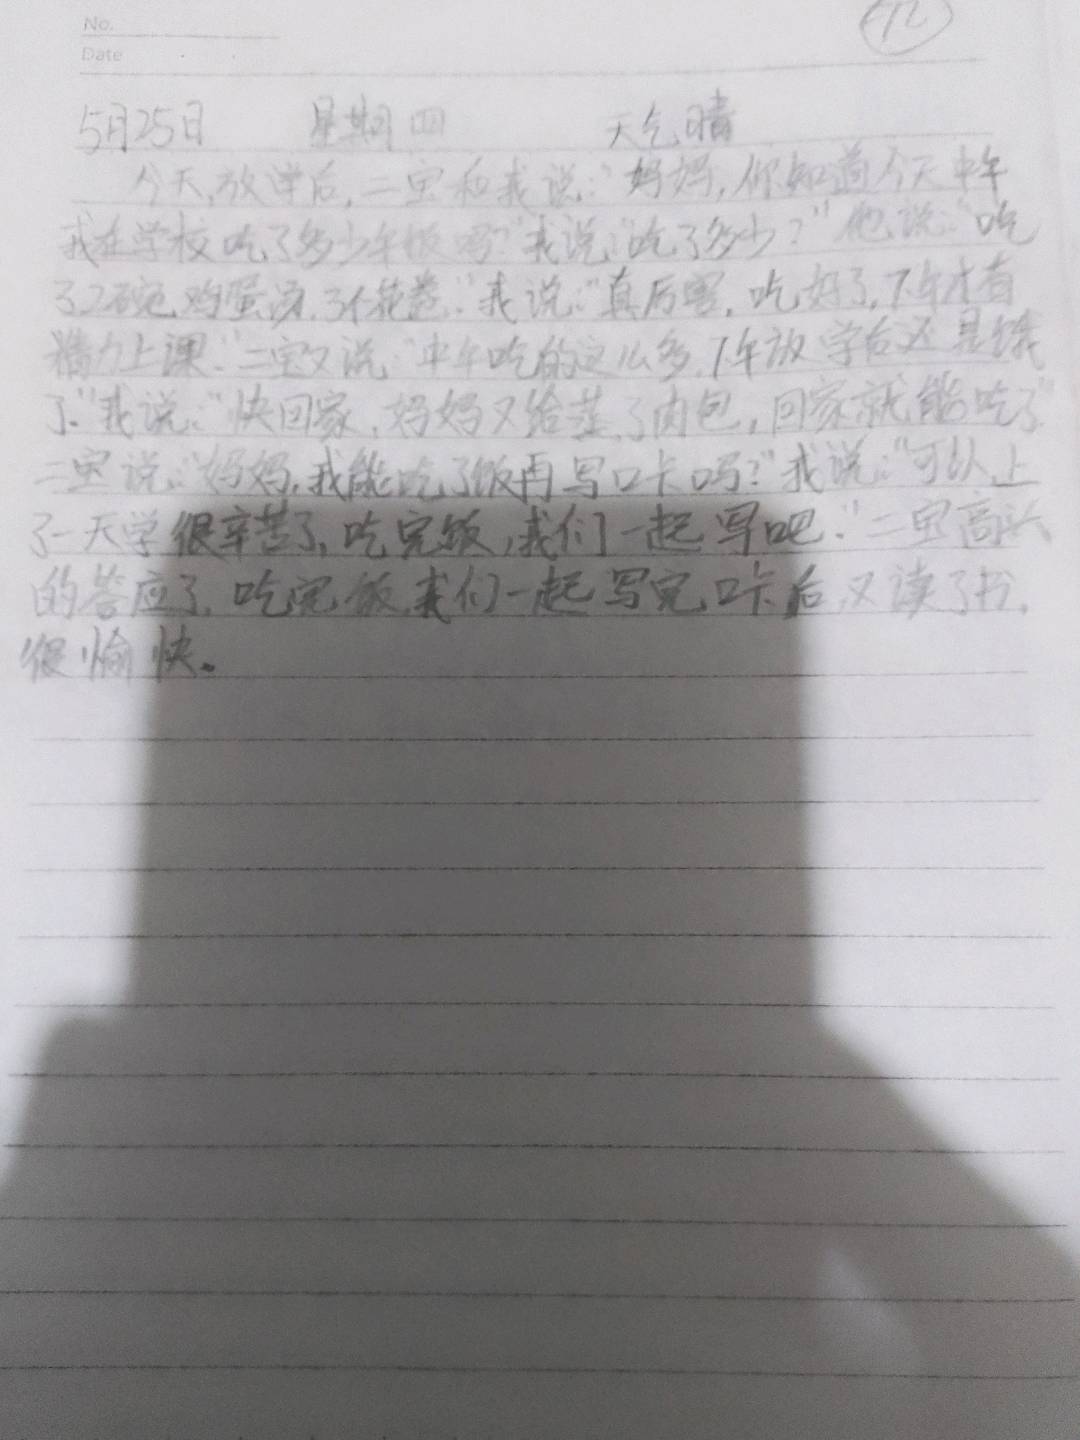 No.
Date
5月25日 星期四 天气晴
今天,放学后,二宝和我说:"妈妈,你知道今天中午
我在学校吃了多少午饭吗?"我说:"吃了多少?"他说:"吃
了2碗鸡蛋汤,3个花卷."我说:"真厉害,吃好了,下午才有
精力上课."二宝又说:"中午吃的这么多,下午放学后还是饿
了."我说:"快回家,妈妈又给蒸了肉包,回家就能吃了"
二宝说:"妈妈,我能吃了饭再写口卡吗?"我说:"可以,上
了一天学很辛苦了,吃完饭,我们一起写吧."二宝高兴
的答应了.吃完饭,我们一起写完口卡后,又读了书,
很愉快。